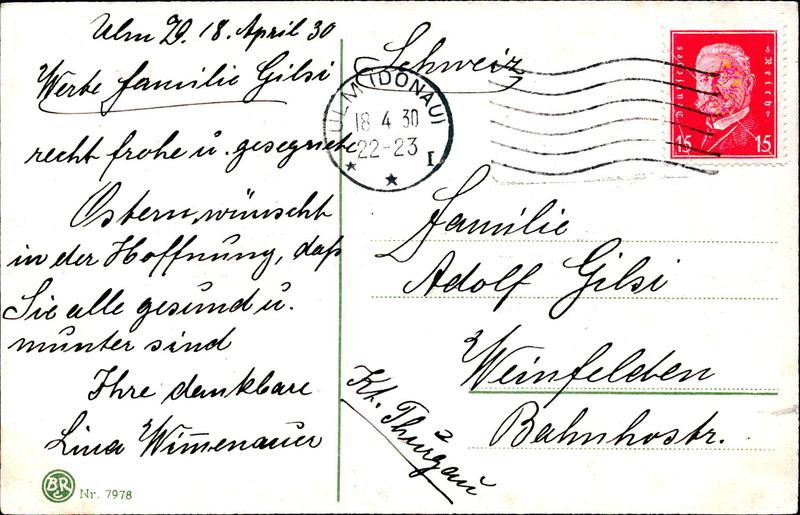 Ulm D. 18. April 30
Werte familie Gilsi
recht frohe u. gesegnete
Ostern, wünscht
in der Hoffnung, daß
Sie alle gesund u.
munter sind
Ihre dankbare
Lina Wimenauer
BR
Nr. 7978
Schweiz
ULM (DONAU)
18 4 30
22-23
I
Deutsches Reich
15 15
familie
Adolf Gilsi
Weinfelden
Bahnhofstr.
Kt. Thurgau